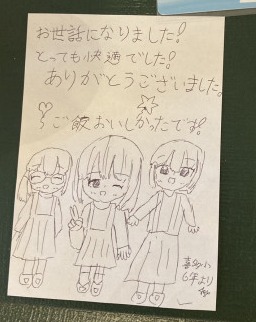 お世話になりました!
とっても快適でした!
ありがとうございました。
ご飯おいしかったです!
6年より